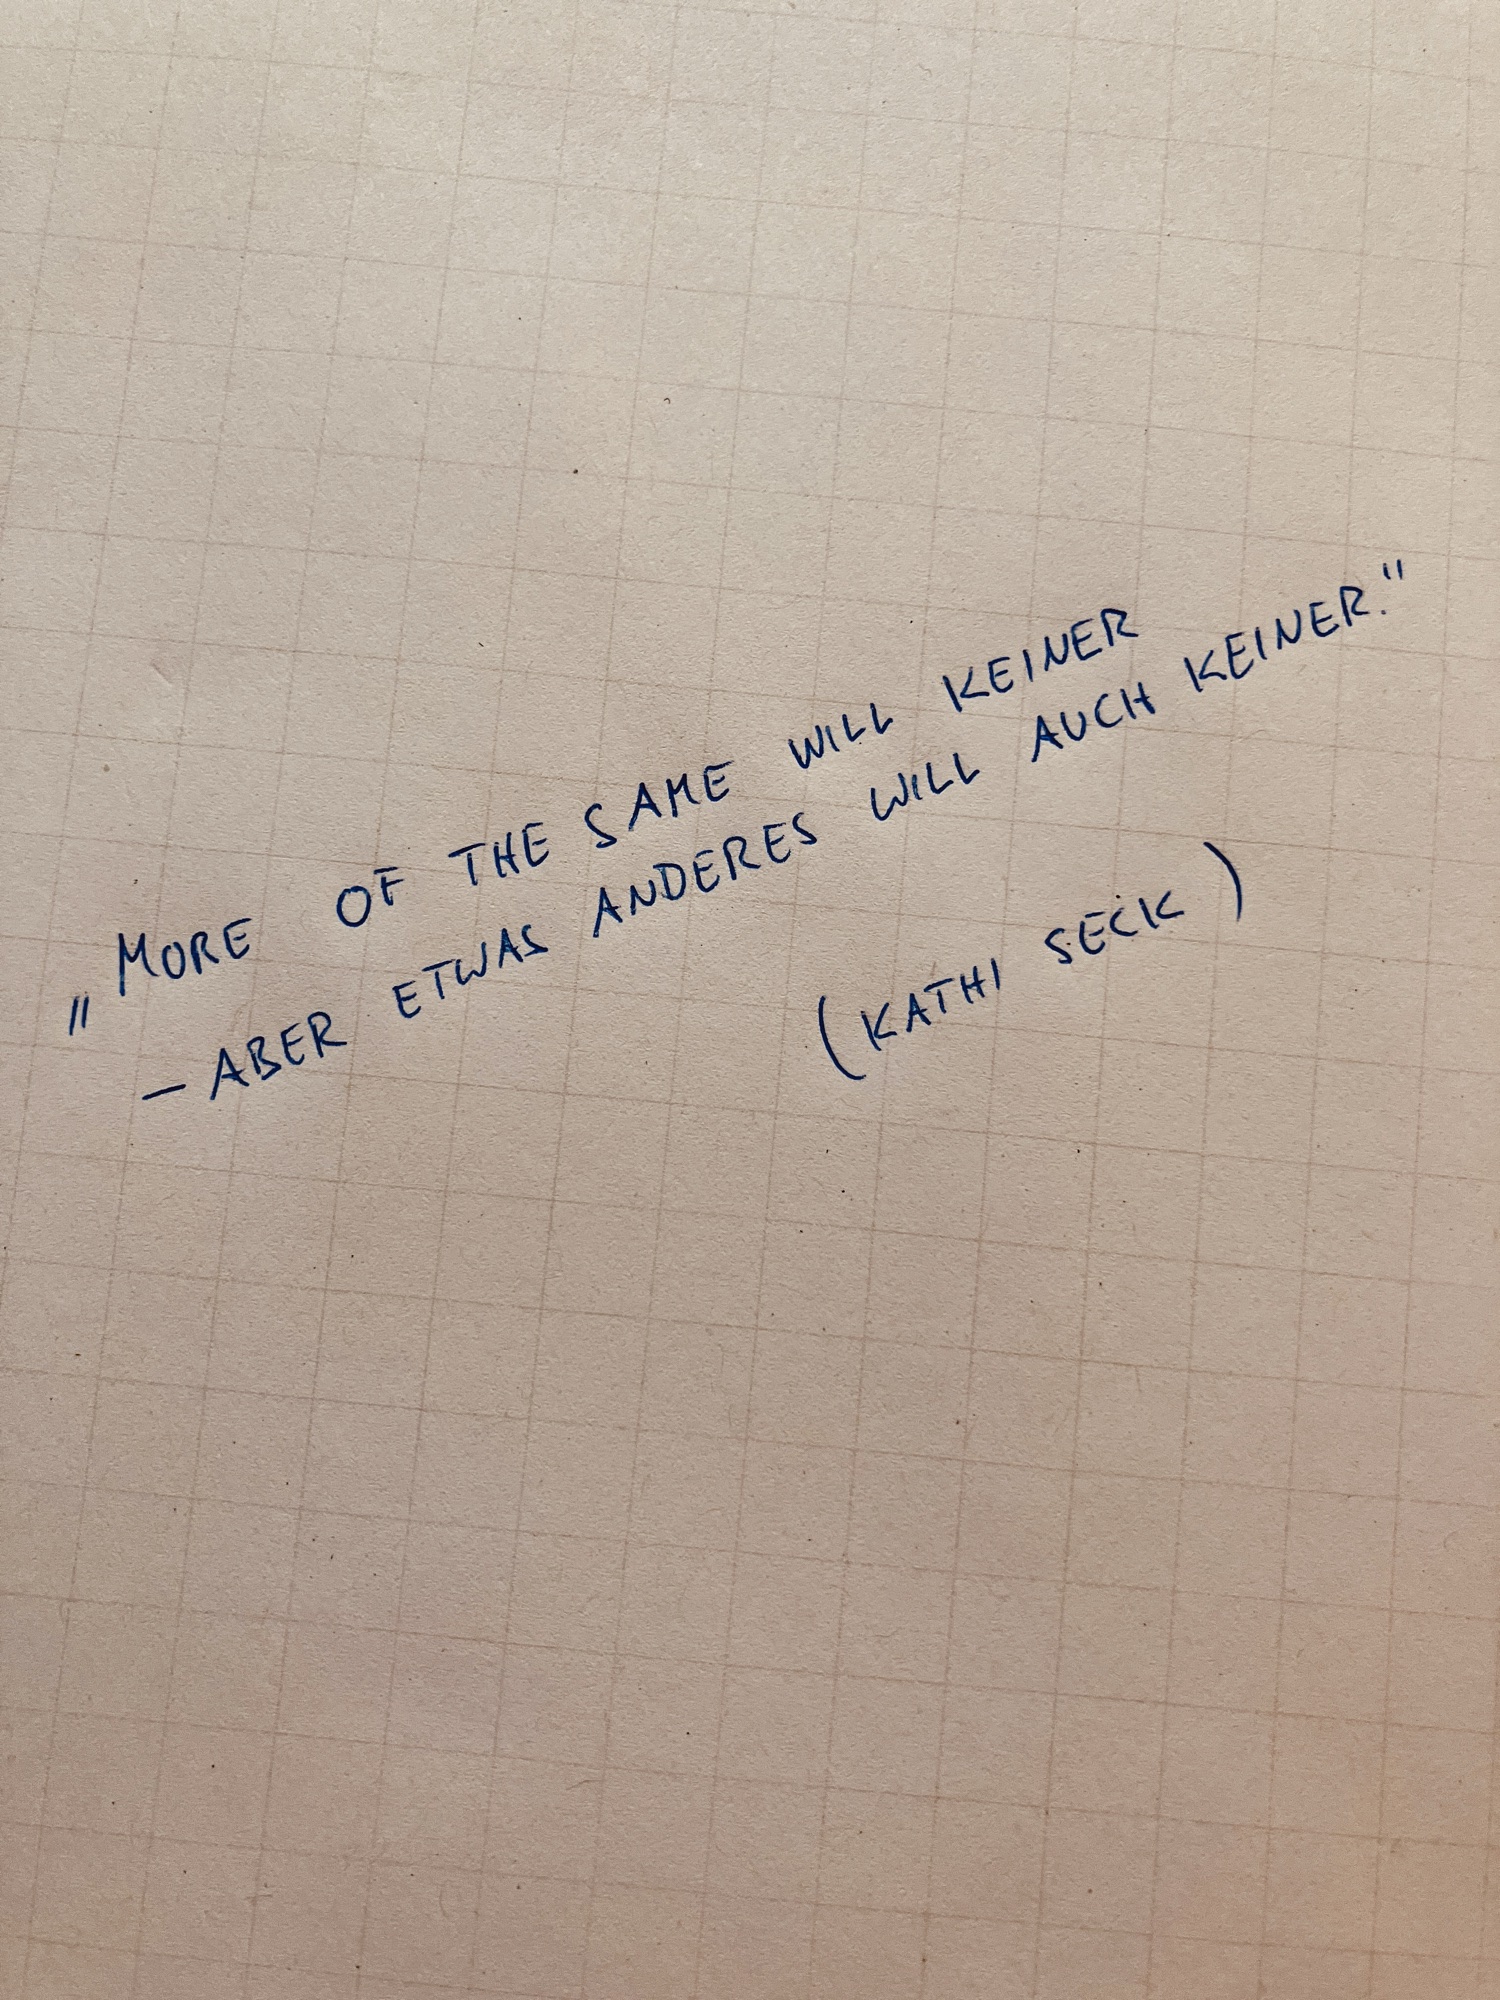 „MORE OF THE SAME WILL KEINER
– ABER ETWAS ANDERES WILL AUCH KEINER."
(KATHI SECK)